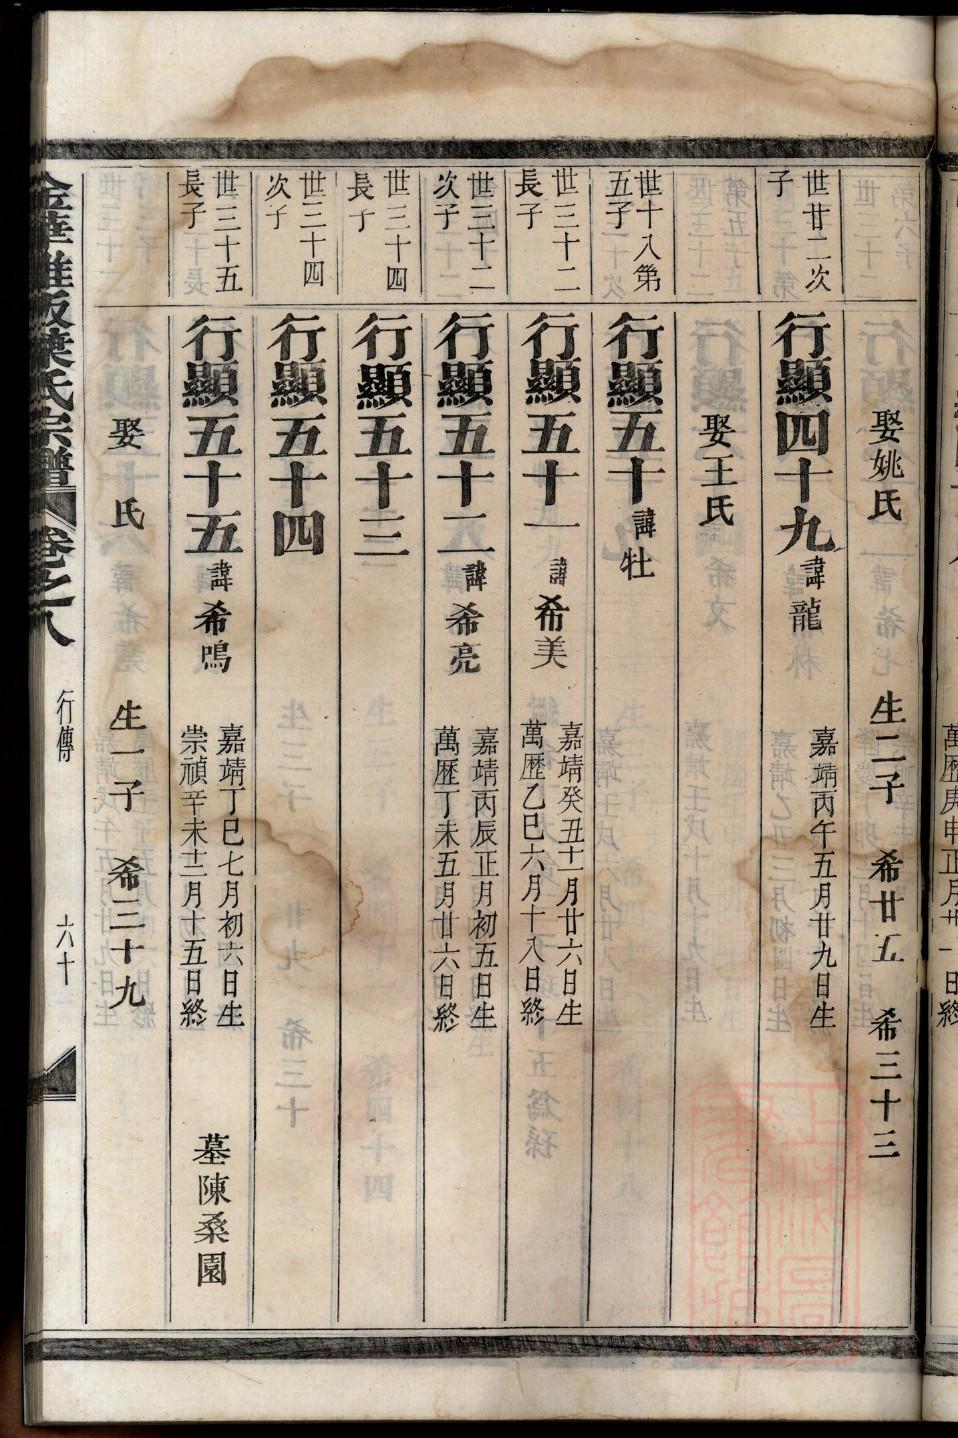 娶姚氏 生二子 希廿五 希三十三
世廿二次子
行顯四十九 諱龍 嘉靖丙午五月廿九日生
娶王氏
世十八第五子
行顯五十 諱牡
世三十二長子
行顯五十一 諱希美 嘉靖癸丑十一月廿六日生
萬歷乙巳六月十八日終
世三十二次子
行顯五十二 諱希亮 嘉靖丙辰正月初五日生
萬歷丁未五月廿六日終
世三十四長子
行顯五十三
世三十四次子
行顯五十四
世三十五長子
行顯五十五 諱希鳴 嘉靖丁巳七月初六日生
崇禎辛未十二月十五日終 墓陳桑園
娶 氏 生一子 希三十九
葉氏宗譜 卷之八 行傳 六十
萬歷庚申正月廿一日終